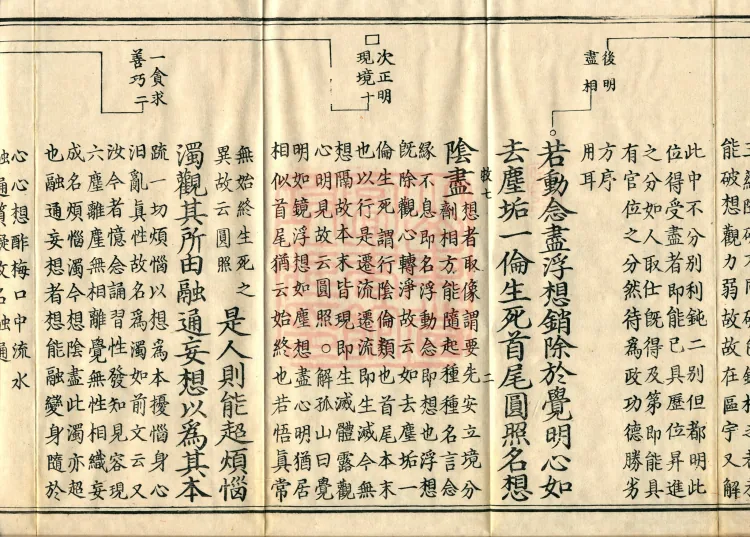 能破想觀力弱故故在區宇又解
此中不分別利鈍二別但都明此
位得受盡者即能已具歷位昇進
之分如人取仕旣得及第即能具
有官位之分然待為政功德勝劣
方序
用耳
後明
盡相
若動念盡浮想銷除於覺明心如
去塵垢一倫生死首尾圓照名想
陰盡
想者取像謂要先安立境分
劑相方能隨起種種名言念
緣不息即名浮動念即想也浮想
旣除觀心轉淨故云如去塵垢一
倫生死謂行陰倫類也首尾本末
也以行是遷流遷流即生滅今無
想隔故本末皆現即生滅體露觀
心明見故云圓照。解孤山曰覺
明如鏡浮想如塵想盡心明猶居
相似首尾猶云始終也若悟真常
無始終生死之
異故云圓照
次正明
現境十
是人則能超煩惱
濁觀其所由融通妄想以為其本
疏一切煩惱以想為本擾惱身心
汩亂真性故名為濁如前文云又
汝今者憶念誦習性發知見容現
六塵離塵無相離覺無性相織妄
成名煩惱濁今想陰盡此濁亦超
也融通妄想者想能融變身隨於
一貪求
善巧二
心心想酢梅口中流水